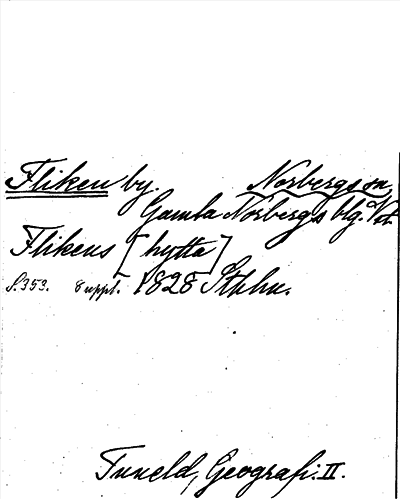 Fliken by. Norbergs sn
Gamla Norbergs blg. Vst.
Flikens [hytta]
S. 353. 8 uppl. 1828 Sthlm.
Tuneld, Geografi. II.